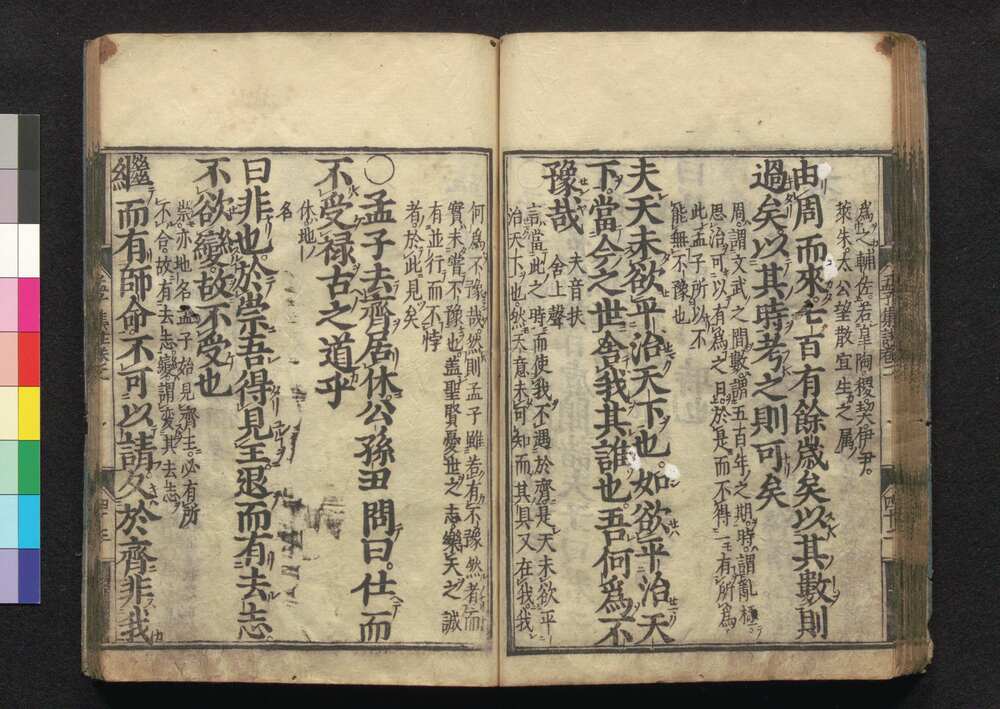 爲之輔佐若皐陶稷契伊尹
萊朱太公望散宜生之屬
由周而來七百有餘歲矣以其數則
過矣以其時考之則可矣
周謂文武之間數謂五百年之期時謂亂極
思治可以有爲之日於是而不得一有所爲
此孟子所以不
能無不豫也
夫天未欲平治天下也如欲平治天
下當今之世舍我其誰也吾何爲不
豫哉
夫音扶
舍上聲
言當此之時而使我不遇於齊是天未欲平
治天下也然天意未可知而其具又在我我
何爲不豫哉然則孟子雖若有不豫然者而
實未嘗不豫也蓋聖賢憂世之志樂天之誠
有並行而不悖
者於此見矣
○孟子去齊居休公孫丑問曰仕而
不受祿古之道乎
休地
名
曰非也於崇吾得見王退而有去志
不欲變故不受也
崇亦地名孟子始見齊王必有所
不合故有去志變謂變其去志
繼而有師命不可以請久於齊非我